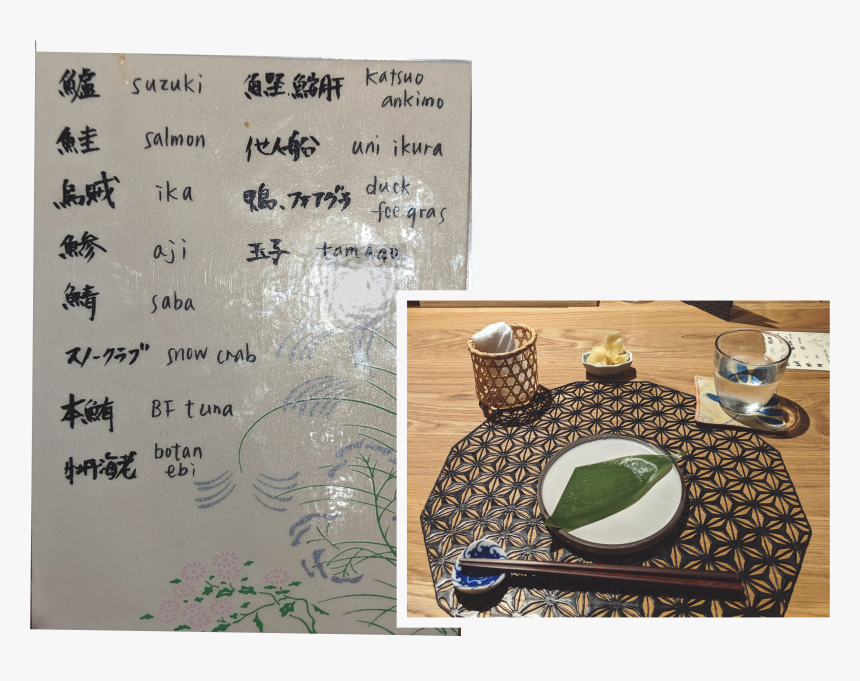 鱸 suzuki
鮭 salmon
烏賊 ika
鯵 aji
鯖 saba
スノークラブ snow crab
本鮪 BF tuna
牡丹海老 botan
ebi
鰹、鮟肝 katsuo
ankimo
uni ikura
鴨、フォアグラ duck
foe gras
玉子 tamago